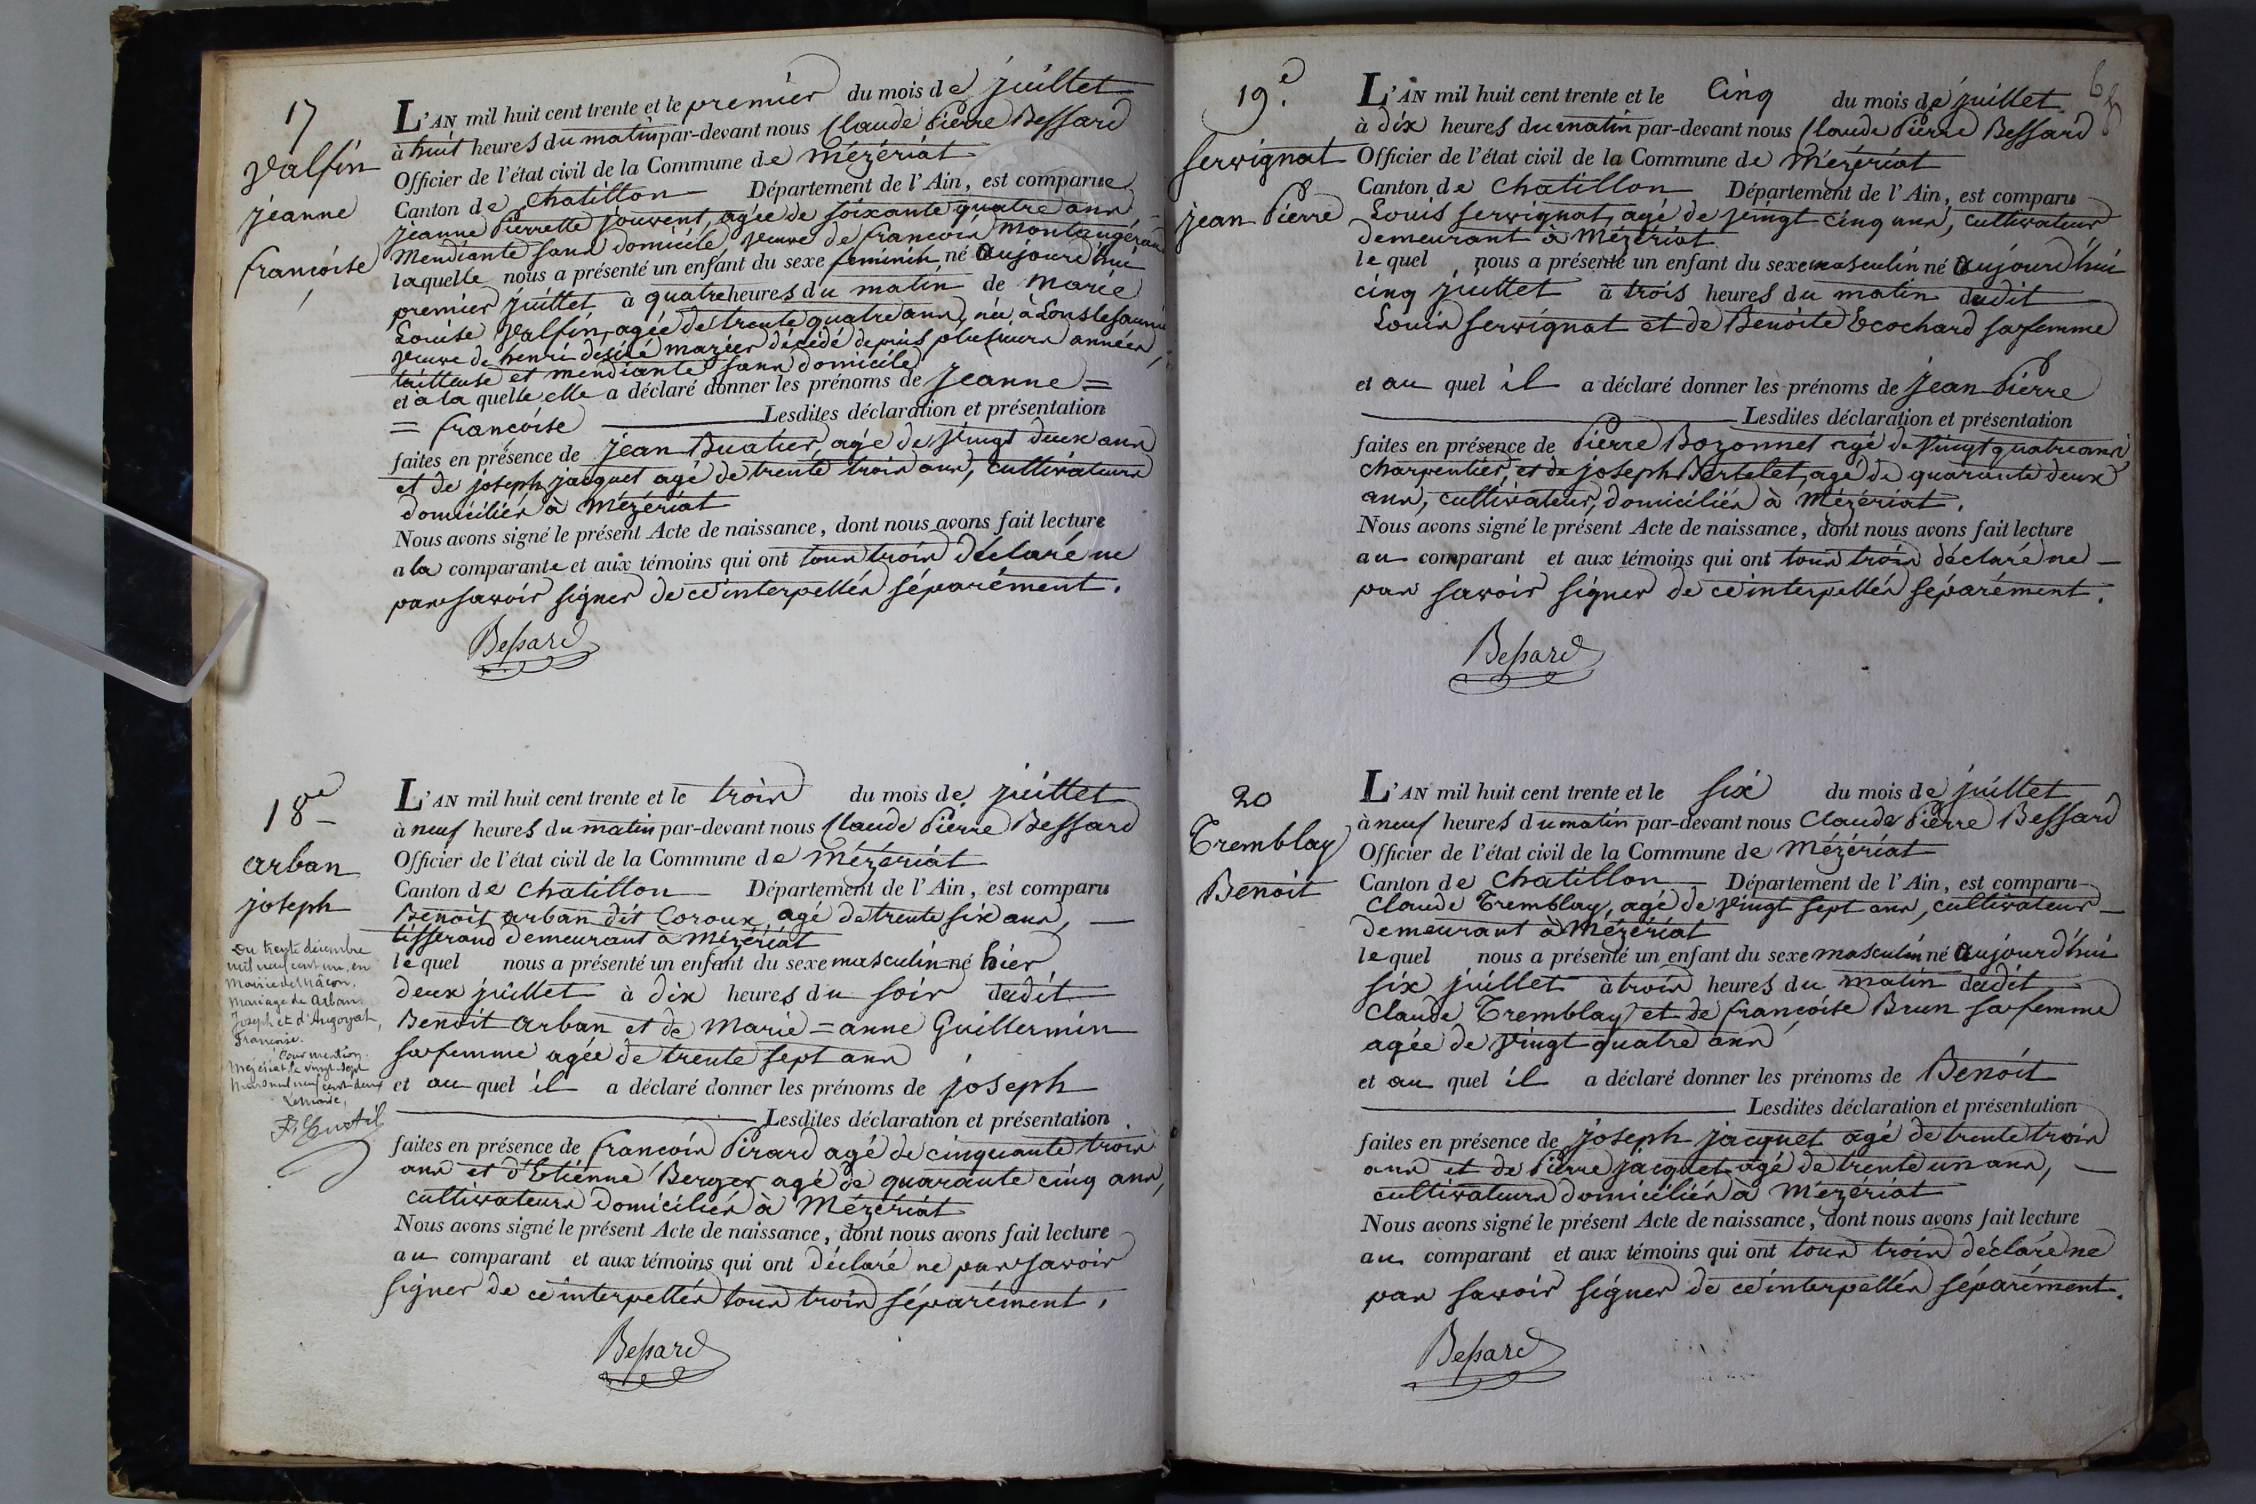 17
Valfin
jeanne
françoise
L'AN mil huit cent trente et le premier du mois de juillet
à huit heures du matin par-devant nous Claude Pierre Bessard
Officier de l'état civil de la Commune de Mézériat
Canton de Chatillon Département de l'Ain, est comparue
jeanne Pierrette jouvent, agée de soixante quatre ans,
Mendiante sans domicile, veuve de françois
laquelle nous a présenté un enfant du sexe feminin né aujourd'hui
premier juillet à quatre heures du matin de Marie
Louise Valfin, agée de trente quatre ans, née à Lonslesaunie
veuve de henri desiré mazier décédé depuis plusieurs années,
tailleuse et mendiante sans domicile
et a la quelle elle a déclaré donner les prénoms de jeanne =
= françoise Lesdites déclaration et présentation
faites en présence de jean Buatier, agé de vingt deux ans
et de joseph jacquet agé de trente trois ans, cultivateurs
domiciliés à Mézériat
Nous avons signé le présent Acte de naissance, dont nous avons fait lecture
a la comparante et aux témoins qui ont tous trois déclaré ne
pas savoir signer de ce interpellés séparément.
Bessard
18e
arban
joseph
Du trente décembre
mil neuf cent un, en
Mairie de Mâcon,
Mariage de Arban
Joseph et d'Augoyat,
Françoise.
Pour mention.
Mézériat, le vingt-sept
Mars mil neuf cent deux
Le Maire,
L'AN mil huit cent trente et le trois du mois de juillet
à neuf heures du matin par-devant nous Claude Pierre Bessard
Officier de l'état civil de la Commune de Mézériat
Canton de Chatillon Département de l'Ain, est comparu
Benoit arban dit Coroux, agé de trente six ans,
tisserand demeurant à Mézériat
le quel nous a présenté un enfant du sexe masculin né hier
deux juillet à dix heures du soir dudit
Benoit arban et de Marie = anne Guillermin
sa femme agée de trente sept ans
et au quel il a déclaré donner les prénoms de joseph
Lesdites déclaration et présentation
faites en présence de françois Pirard agé de cinquante trois
ans et d'Etienne Berger agé de quarante cinq ans,
cultivateurs domiciliés à Mézériat
Nous avons signé le présent Acte de naissance, dont nous avons fait lecture
au comparant et aux témoins qui ont déclaré ne pas savoir
signer de ce interpellés tous trois séparément.
Bessard
19e.
servignat
jean Pierre
L'AN mil huit cent trente et le Cinq du mois de juillet
à dix heures du matin par-devant nous Claude Pierre Bessard
Officier de l'état civil de la Commune de Mézériat
Canton de Chatillon Département de l'Ain, est comparu
Louis servignat, agé de vingt cinq ans, cultivateur
demeurant à Mézériat
le quel nous a présenté un enfant du sexe masculin né aujourd'hui
cinq juillet à trois heures du matin dudit
Louis servignat et de Benoite Ecochard sa femme
et au quel il a déclaré donner les prénoms de jean Pierre
Lesdites déclaration et présentation
faites en présence de Pierre Bozonnet agé de Vingt quatre ans
charpentier, et de joseph Bertelet, agé de quarante deux
ans, cultivateur, domiciliés à Mézériat.
Nous avons signé le présent Acte de naissance, dont nous avons fait lecture
au comparant et aux témoins qui ont tous trois déclaré ne
pas savoir signer de ce interpellés séparément.
Bessard
20
Tremblay
Benoit
L'AN mil huit cent trente et le six du mois de juillet
à neuf heures du matin par-devant nous Claude Pierre Bessard
Officier de l'état civil de la Commune de Mézériat
Canton de Chatillon Département de l'Ain, est comparu
Claude Tremblay, agé de vingt sept ans, cultivateur
demeurant à Mézériat
le quel nous a présenté un enfant du sexe masculin né aujourd'hui
six juillet à trois heures du matin dudit
Claude Tremblay et de françoise Brun sa femme
agée de vingt quatre ans
et au quel il a déclaré donner les prénoms de Benoit
Lesdites déclaration et présentation
faites en présence de joseph jacquet agé de trente trois
ans et de Pierre jacquet agé de trente un ans,
cultivateurs domiciliés à Mézériat
Nous avons signé le présent Acte de naissance, dont nous avons fait lecture
au comparant et aux témoins qui ont tous trois déclaré ne
pas savoir signer de ce interpellés séparément.
Bessard